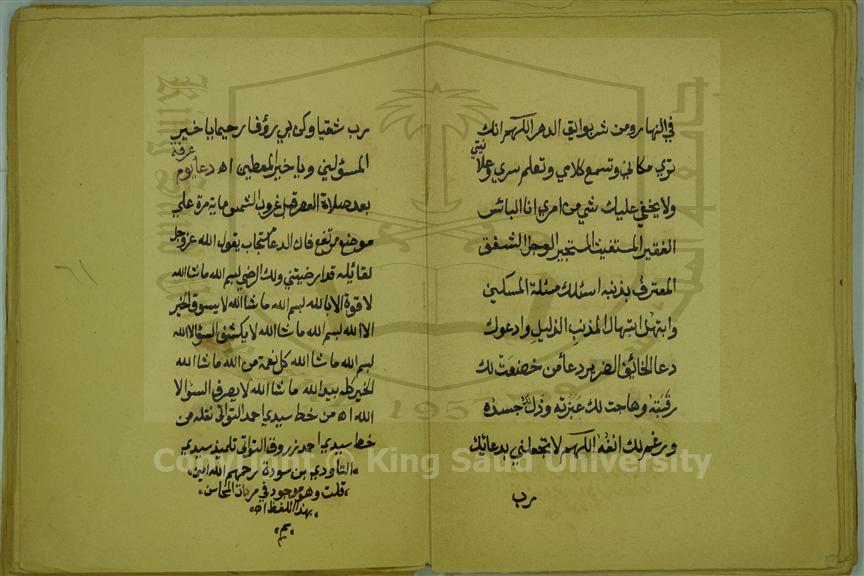 في النهار ومن شر بوايق الدهر اللهم انك
تري مكاني وتسمع كلامي وتعلم سري وعلا
نيتي
ولا يخفي عليك شي من امري انا البائس
الفقير المستغيث المستجير الوجل المشفق
المعترف بذنبه اسئلك مسئلة المسكين
وابتهل ابتهال المذنب الذليل وادعوك
دعا الخائف الضرير دعا من خضعت لك
رقبته وهاجت لك عبرته وذل لك جسده
ورغم لك انفه اللهم لا تجعلني بدعائك
رب
رب شقيا وكن بي رؤفا رحيما يا خير
المسؤلين ويا خير المعطين اه دعا يوم
عرفة
بعد صلاة العصر قبل غروب الشمس ماية مرة علي
موضع مرتفع فان الدعا مستجاب يقول الله عز وجل
لقائيله قد ارضيتني ولك الرضي بسم الله ما شا الله
لا قوة الا بالله بسم الله ما شا الله لا يسوق الخير
الا الله بسم الله ما شا الله لا يكشف السؤ الا الله
بسم الله ما شا الله كل نعمة من الله ما شا الله
الخير كله بيد الله ما شا الله لا يصرف السؤ الا
الله اه من خط سيدي احمد التواتي نقله من
خط سيدي احمد زروق التواتي تلميذ سيدي
التاودي بن سودة رحمهم الله امين
قلت وهو موجود في مرءات المحاسن
بهذا اللفظ اه
King Saud University
1957
Copyright © King Saud University